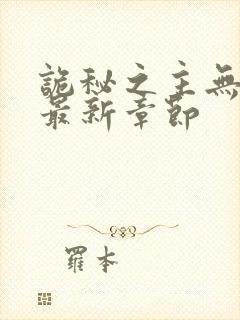 詭秘之主無
最新章節
羅本